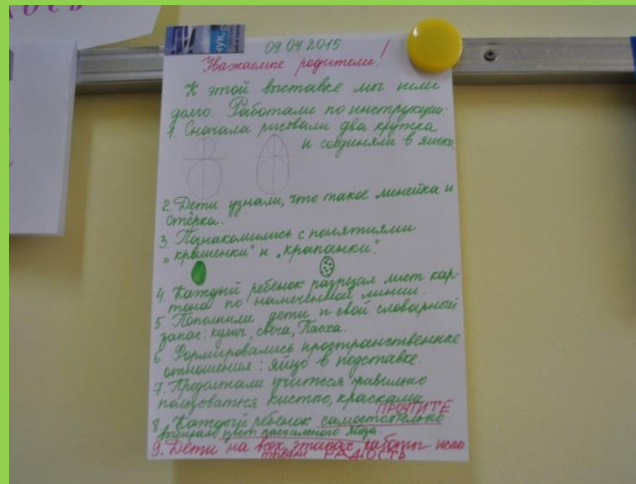 КОСЬ
09.04.2015
Уважаемые родители!
К этой выставке мы шли
долго. Работали по инструкции:
1. Сначала рисовали два кружка
и соединяли в яйцо.
2. Дети узнали, что такое линейка и
стёрка.
3. Познакомились с понятиями
"крашенки" и "крапанки".
4. Каждый ребёнок разрезал лист кар-
тона по намеченной линии.
5. Пополнили дети и свой словарный
запас: кулич, свеча, Пасха.
6. Формировались пространственные
отношения: яйцо в подставке.
7. Продолжали учиться правильно
пользоваться кистью, красками.
ПРОЧТИТЕ
8. Каждый ребёнок самостоятельно
выбирал цвет пасхального яйца.
9. Дети на всех этапах работы испы
тывали РАДОСТЬ